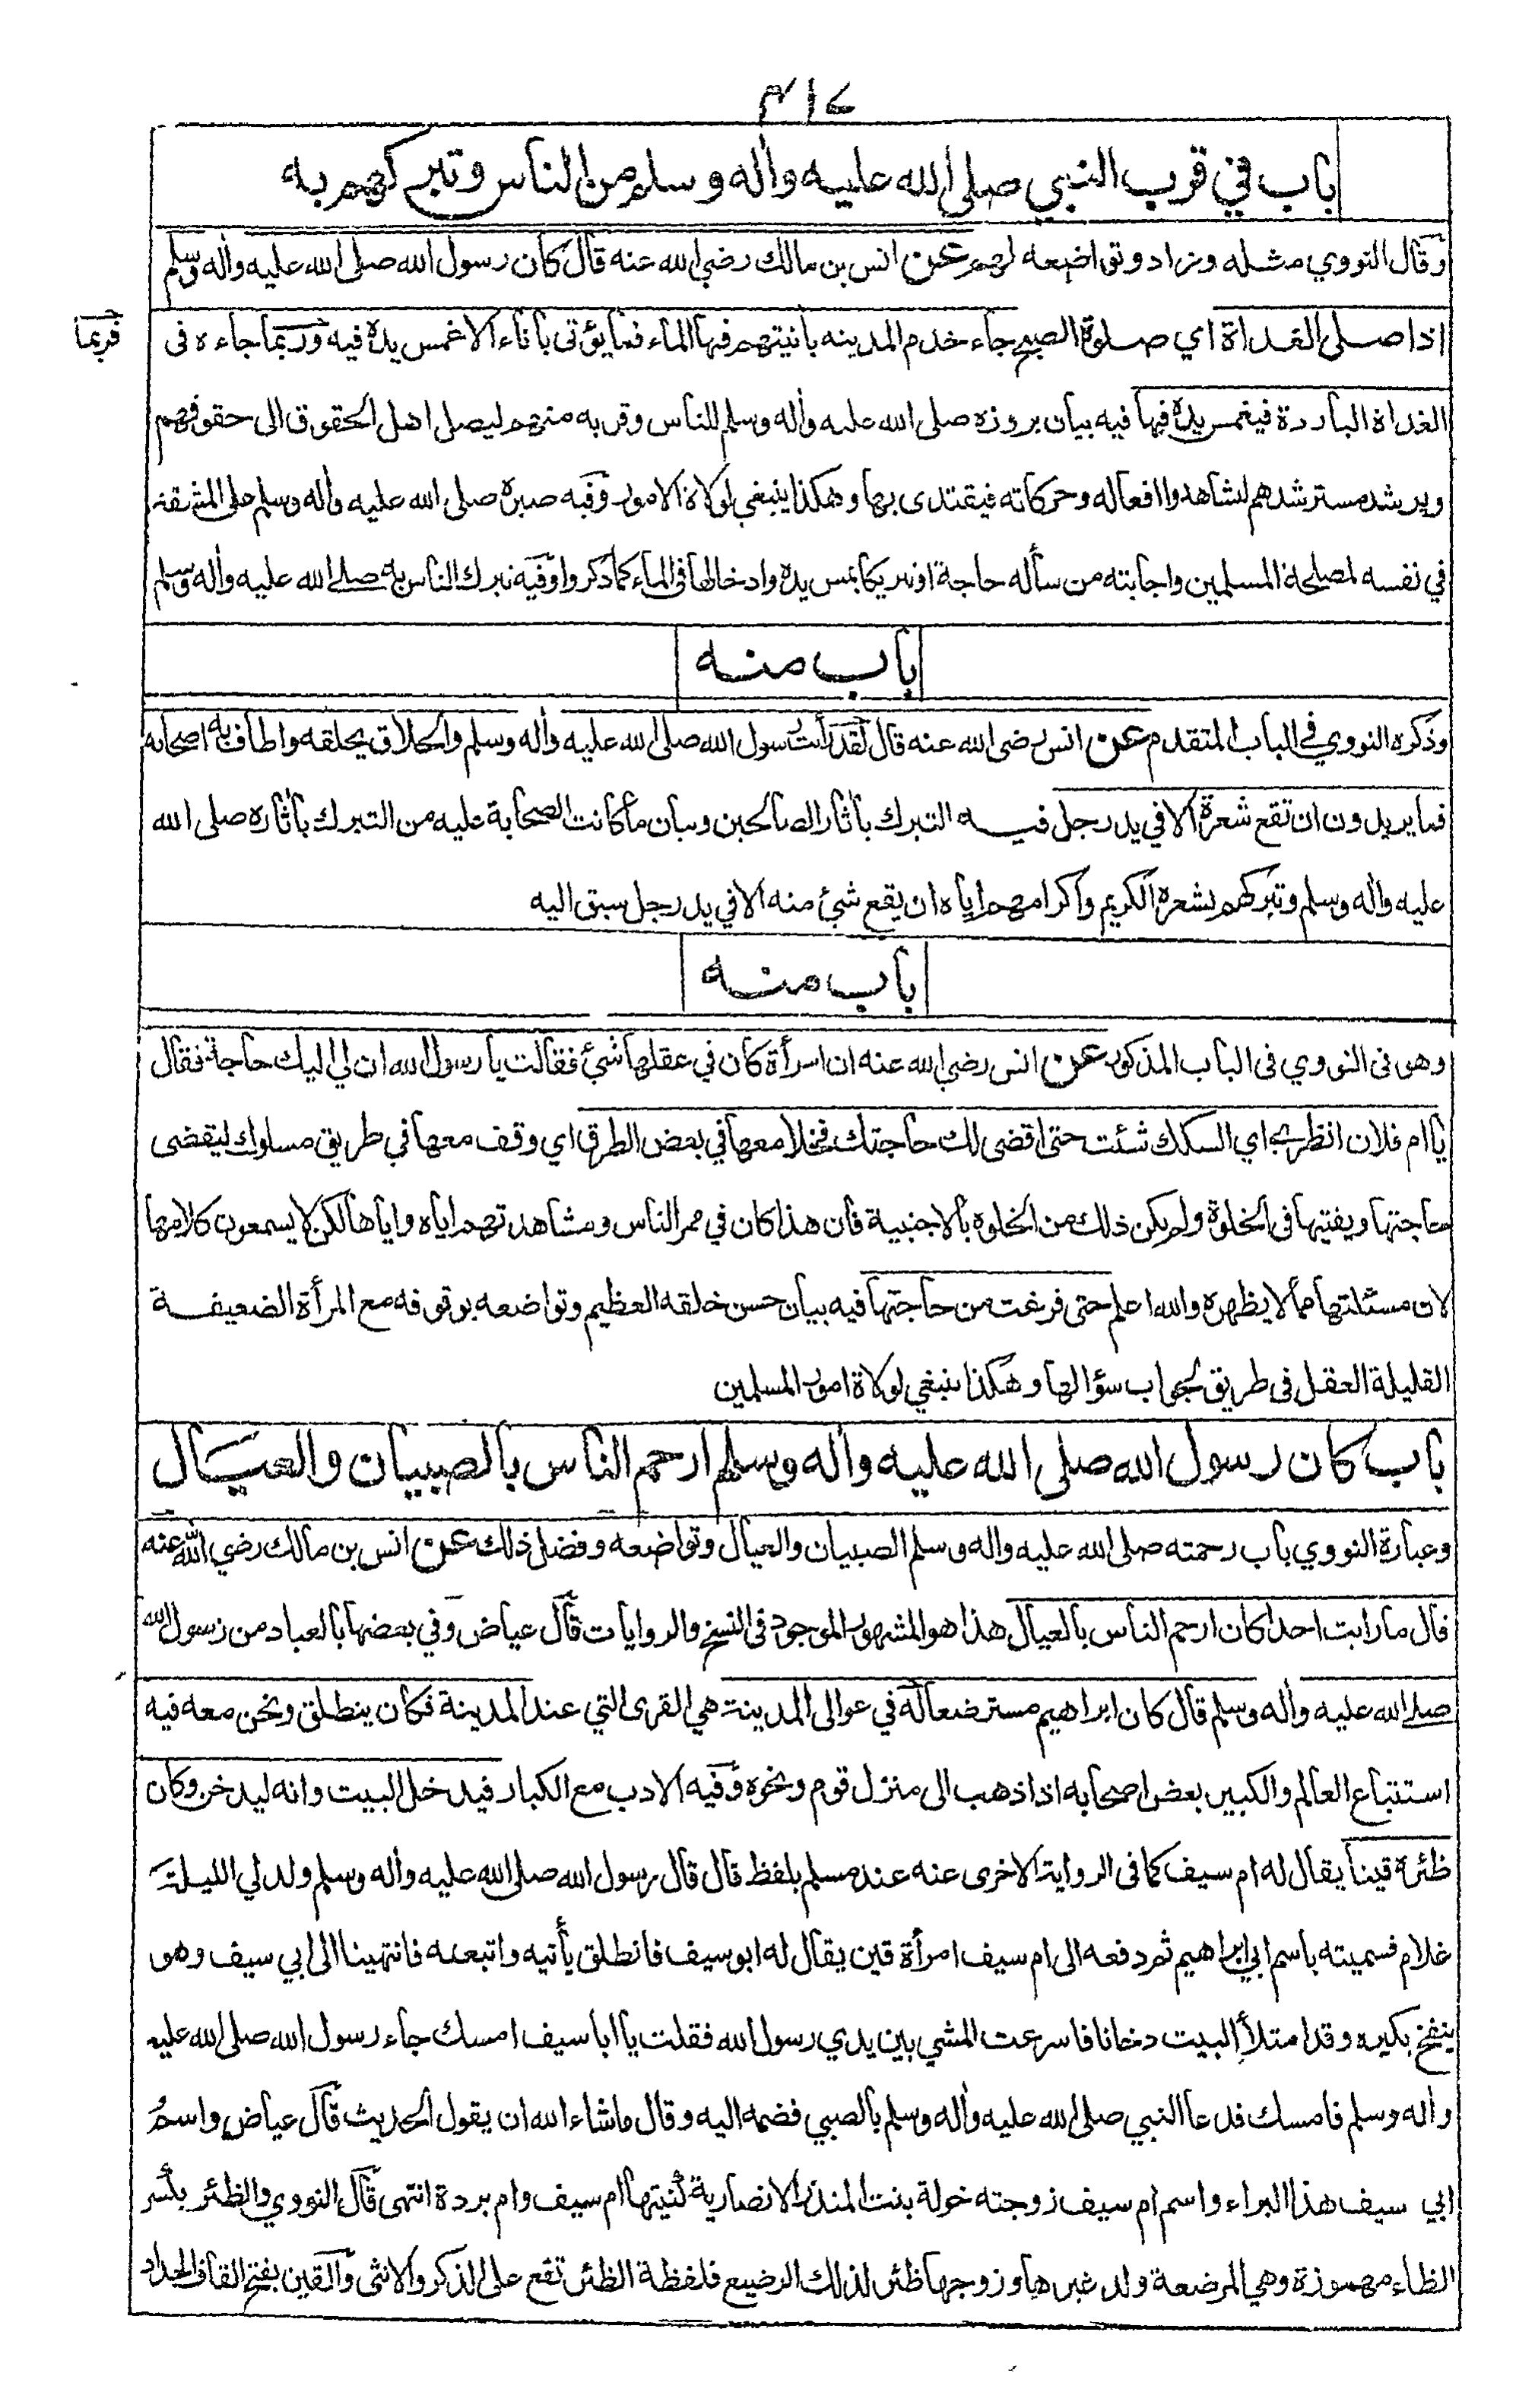 ٤١٧
باب في قرب النبي صلى الله عليه وأله وسلم من الناس وتبركهم به
وقال النووي مثله وزاد وتواضعه لهم عن انس بن مالك رضي الله عنه قال كان رسول الله صلى الله عليه وأله وسلم
اذا صلى الغداة اي صلوة الصبح جاء خدم المدينه بانيتهم فيها الماء فما يؤتى باناء الا غمس يده فيه وربما جاءه فى
فربما
الغداة الباردة فيغمس يده فيها فيه بيان بروزه صلى الله عليه وأله وسلم للناس وقربه منهم ليصل اهل الحقوق الى حقوقهم
ويرشد مسترشدهم ليشاهدوا افعاله وحركاته فيقتدى بها وهكذا ينبغي لولاة الامور وفيه صبره صلى الله عليه وأله وسلم على المشقة
في نفسه لمصلحة المسلمين واجابته من سأله حاجة او تبريكا بمس يده وادخالها فى الماء كما ذكروا وفيه تبرك الناس به صلى الله عليه وأله وسلم
باب منه
وذكره النووي في الباب المتقدم عن انس رضى الله عنه قال لقد رأيت رسول الله صلى الله عليه وأله وسلم والحلاق يحلقه واطاف به اصحابه
فما يريدون ان تقع شعرة الا في يد رجل فيه التبرك بأثار الصالحين وبيان ما كانت الصحابة عليه من التبرك بأثاره صلى الله
عليه وأله وسلم وتبركهم بشعره الكريم واكرامهم اياه ان يقع شيئ منه الا في يد رجل سبق اليه
باب منه
وهو فى النووي فى الباب المذكور عن انس رضي الله عنه ان امرأة كان في عقلها شيئ فقالت يا رسول الله ان لي اليك حاجة فقال
يا ام فلان انظري اي السكك شئت حتى اقضى لك حاجتك فخلا معها في بعض الطرق اي وقف معها في طريق مسلوك ليقضى
حاجتها ويفتيها فى الخلوة ولم يكن ذلك من الخلوه بالاجنبية فان هذا كان في ممر الناس ومشاهدتهم اياه واياها لكن لا يسمعون كلامها
لان مسئلتها مما لا يظهره والله اعلم حتى فرغت من حاجتها فيه بيان حسن خلقه العظيم وتواضعه بوقوفه مع المرأة الضعيفة
القليلة العقل فى طريق لجواب سؤالها وهكذا ينبغي لولاة امور المسلمين
باب كان رسول الله صلى الله عليه وأله وسلم ارحم الناس بالصبيان والعيال
وعبارة النووي باب رحمته صلى الله عليه واله وسلم الصبيان والعيال وتواضعه وفضل ذلك عن انس بن مالك رضي الله عنه
قال ما رايت احدا كان ارحم الناس بالعيال هذا هو المشهور الموجود فى النسخ والروايات قال عياض وفي بعضها بالعباد من رسول الله
صلى الله عليه وأله وسلم قال كان ابراهيم مسترضعا له في عوالى المدينة هي القرى التي عند المدينة فكان ينطلق ونحن معه فيه
استتباع العالم والكبير بعض اصحابه اذا ذهب الى منزل قوم ونحوه وفيه الادب مع الكبار فيدخل البيت وانه ليدخن وكان
ظئره قينا يقال له ام سيف كما فى الرواية الاخرى عنه عند مسلم بلفظ قال قال رسول الله صلى الله عليه وأله وسلم ولد لي الليلة
غلام فسميته باسم ابي ابراهيم ثم دفعه الى ام سيف امرأة قين يقال له ابو سيف فانطلق يأتيه واتبعته فانتهينا الى ابي سيف وهو
ينفخ بكيره وقد امتلأ البيت دخانا فاسرعت المشي بين يدي رسول الله فقلت يا ابا سيف امسك جاء رسول الله صلى الله عليه
وأله وسلم فامسك فدعا النبي صلى الله عليه وأله وسلم بالصبي فضمه اليه وقال ما شاء الله ان يقول الحديث قال عياض واسم
ابي سيف هذا البراء واسم ام سيف زوجته خولة بنت المنذر الانصارية كنيتها ام سيف وام بردة انتهى قال النووي والظئر بكسر
الظاء مهموزة وهي المرضعة ولد غيرها وزوجها ظئر لذلك الرضيع فلفظة الظئر تقع على الذكر والانثى والقين بفتح القاف الحداد